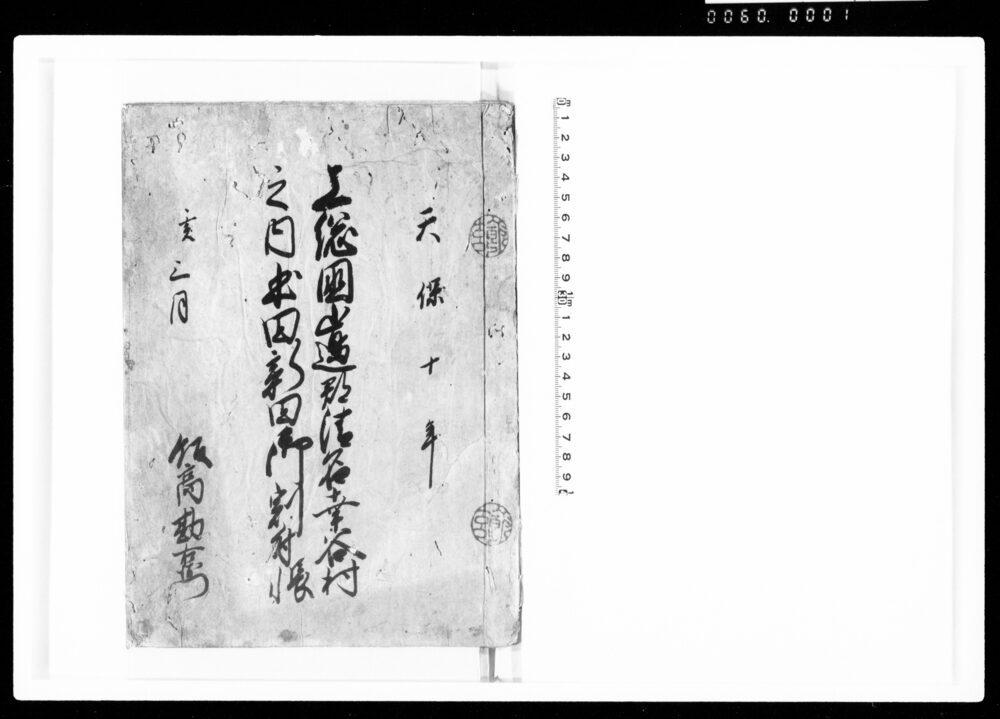 0060.0001
天保十年
上総國山邉郡清名幸谷村
之内本田新田御割附帳
亥三月
飯高勘左衛門
0 1 2 3 4 5 6 7 8 9 10 1 2 3 4 5 6 7 8 9